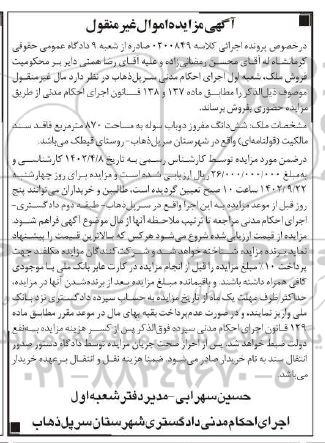 آگهی مزایده اموال غیر منقول
درخصوص پرونده اجرائی کلاسه ۰۲۰۰۸۴۹ صادره از شعبه ۹ دادگاه عمومی حقوقی
کرمانشاه له آقای محسن رمضانی زاده و علیه آقای رضا همتی دایر بر محکومیت
فروش ملک، شعبه اول اجرای احکام مدنی سرپل‌ذهاب در نظر دارد مال غیرمنقول
موصوف ذیل‌الذکر را مطابق ماده ۱۳۷ و ۱۳۸ قانون اجرای احکام مدنی از طریق
مزایده حضوری بفروش برساند.
مشخصات ملک: شش‌دانگ مفروز دوباب سوله به مساحت ۸۷۰ مترمربع فاقد سند
مالکیت (قولنامه‌ای) واقع در شهرستان سرپل‌ذهاب- روستای قیطک می‌باشد.
درضمن مورد مزایده توسط کارشناس رسمی به تاریخ ۱۴۰۲/۴/۸ کارشناسی و
به‌مبلغ ۲۶/۰۰۰/۰۰۰/۰۰۰ ریال ارزیابی شده است و مزایده برای روز چهارشنبه
۱۴۰۲/۹/۲۲ ساعت ۱۰ صبح تعیین گردیده است، طالبین و خریداران می‌توانند پنج
روز قبل از موعد مزایده به این اجرا واقع در سرپل‌ذهاب- طبقه دوم دادگستری-
اجرای احکام مدنی مراجعه تا ترتیب ملاحظه آنها از مال موضوع آگهی فراهم شود.
مزایده از قیمت ارزیابی شده شروع می‌شود هرکس که بالاترین قیمت را پیشنهاد
نماید برنده مزایده شناخته خواهد شد و شرکت کنندگان مزایده مکلفند جهت
پرداخت ۱۰٪ مبلغ مزایده را قبل از انجام مزایده در کارت عابر بانک ملی با موجودی
کافی همراه داشته باشند. و باقیمانده مبلغ مزایده بعد از برنده شدن آنها در مزایده،
حداکثر ظرف مهلت یک ماه از تاریخ مزایده به حساب سپرده دادگستری نزد بانک
ملی واریز نمایند، و در صورت عدم پرداخت بقیه بهای مال در موعد مقرر مطابق ماده
۱۲۹ قانون اجرای احکام مدنی سپرده فوق‌الذکر پس از کسر هزینه مزایده به‌نفع
دولت ضبط خواهد شد. پس از احراز صحت جریان مزایده توسط دادگاه دستور صدور
انتقال سند به نام خریدار صادر می‌شود. ضمنا هزینه نقل و انتقال برعهده خریدار
می‌باشد.
حسین سهرابی- مدیر دفتر شعبه اول
اجرای احکام مدنی دادگستری شهرستان سرپل ذهاب